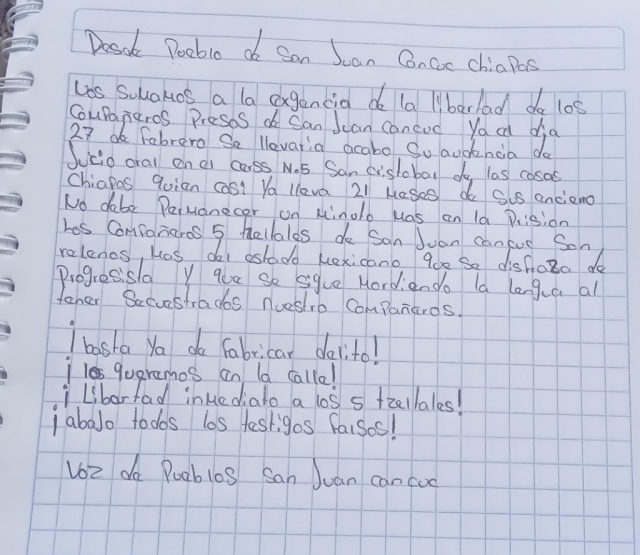 Desde Pueblo de San Juan Cancuc Chiapas
Nos sumamos a la exgencia de la libertad de los
Compañeros Presos de San Juan cancuc Ya el dia
27 de Fabrero se llevaria acabo su audencia de
Juicio oral en el carss No.5 San cistobal de las casas
Chiapas quien casi Ya lleva 21 Meses de sus anciano
No debe Permanecer un Minoto Mas en la Prision
Los Compañeros 5 tzeltales de San Juan cancuc Son
relenos, Mas del estado Mexicano que se disfraza de
Progresista Y que se sigue Mordiendo la lengua al
tener Secuestrados nuestro Compañeros.
¡basta Ya de Fabricar delito!
¡los queremos en la calle!
¡Libertad inmediato a los 5 tzeltales!
¡abajo todos los testigos falsos!
Voz de Pueblos San Juan cancuc